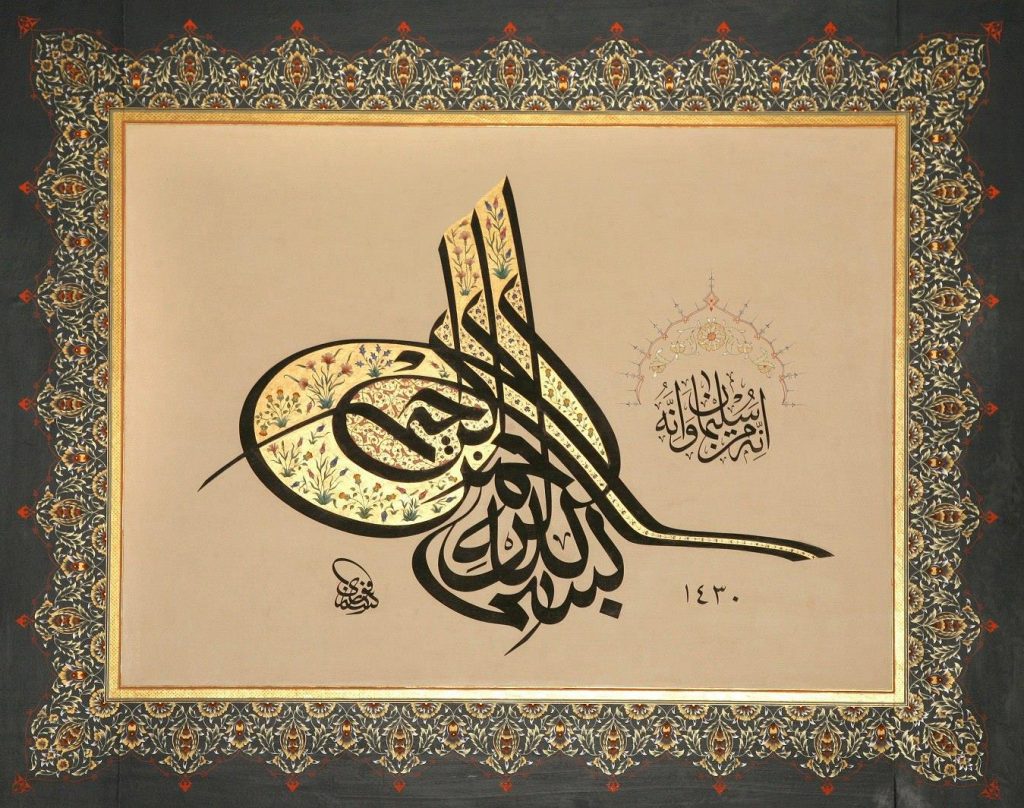 إنه من سليمان وإنه
بسم الله الرحمن الرحيم
١٤٣٠